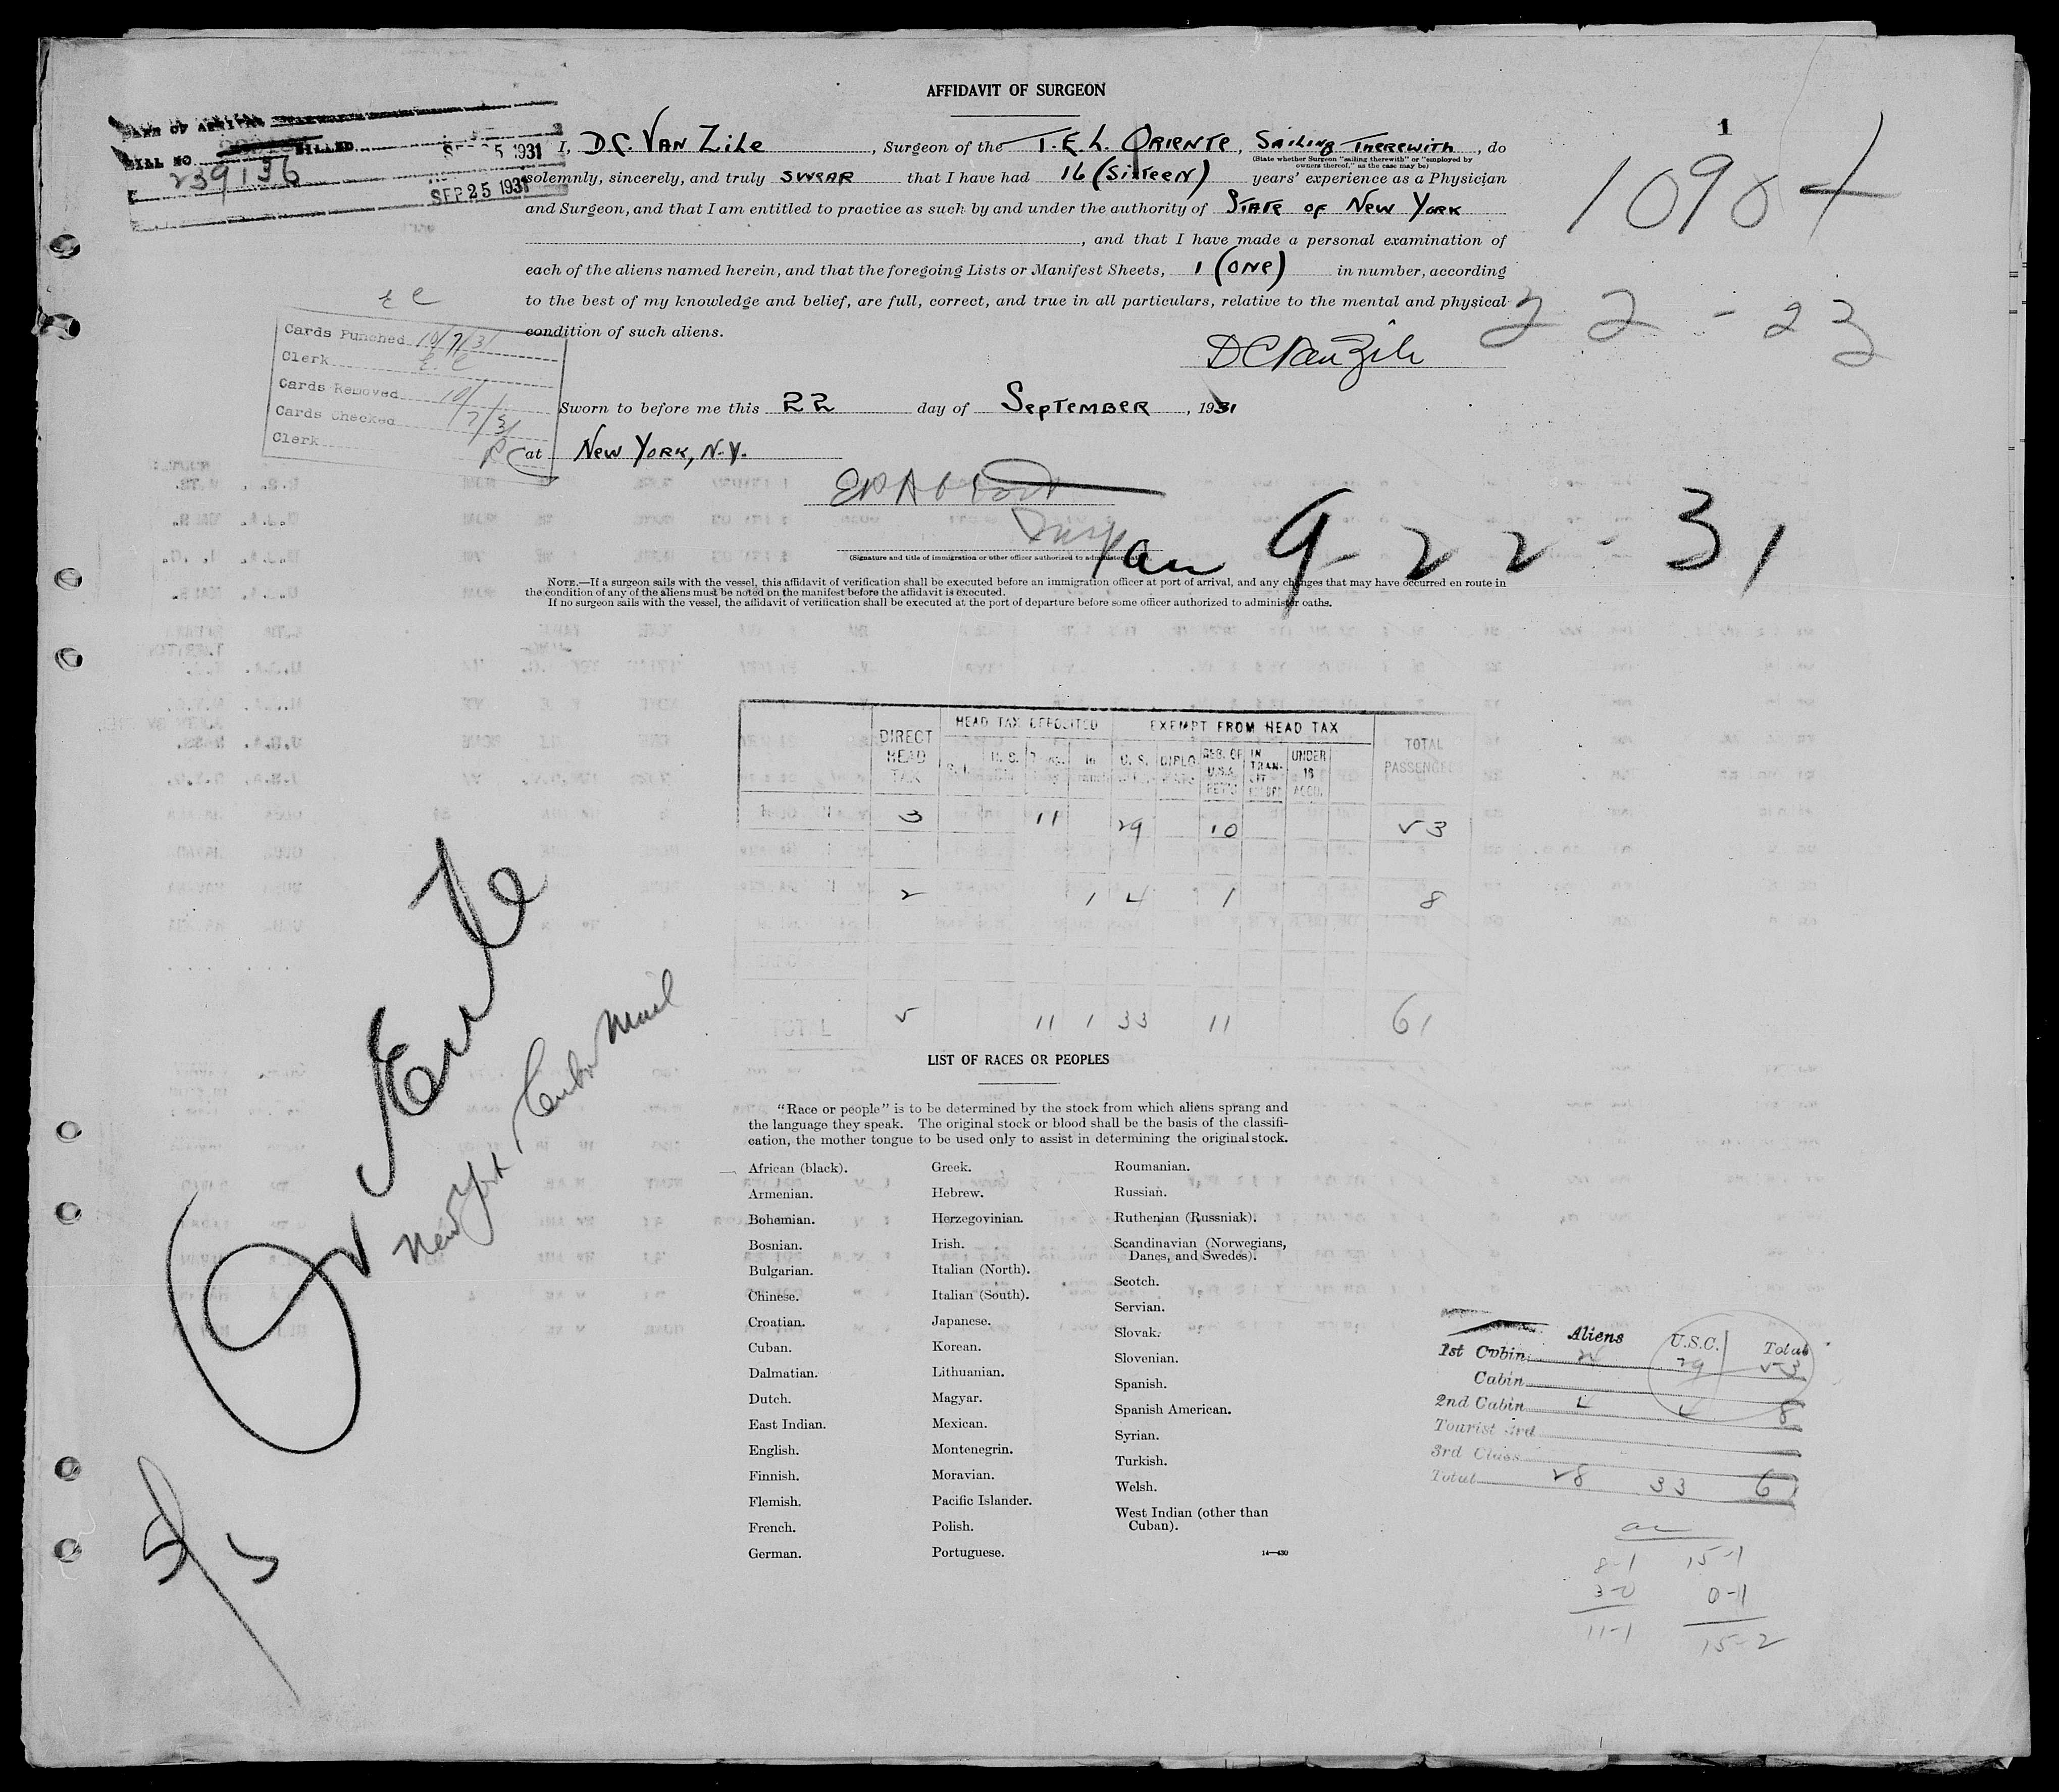 AFFIDAVIT OF SURGEON
1
BILL NO. BILLED
239136
SEP 25 1931
SEP 25 1931
I, D.C. VAN ZILE, Surgeon of the T.E.L. ORIENTE, SAILING THEREWITH, do
(State whether Surgeon "sailing therewith" or "employed by
owners thereof," as the case may be)
solemnly, sincerely, and truly SWEAR that I have had 16 (SIXTEEN) years' experience as a Physician
and Surgeon, and that I am entitled to practice as such by and under the authority of STATE OF NEW YORK
, and that I have made a personal examination of
each of the aliens named herein, and that the foregoing Lists or Manifest Sheets, 1 (ONE) in number, according
to the best of my knowledge and belief, are full, correct, and true in all particulars, relative to the mental and physical
condition of such aliens.
DC Van Zile
10904
22-23
EC
Cards Punched 10/7/31
Clerk E.C
Cards Removed 10/
Cards Checked 7/31
Clerk
Sworn to before me this 22 day of SEPTEMBER, 1931
at NEW YORK, N.Y.
Insp
(Signature and title of immigration or other officer authorized to administer oaths.)
an 9-22-31
NOTE.—If a surgeon sails with the vessel, this affidavit of verification shall be executed before an immigration officer at port of arrival, and any changes that may have occurred en route in
the condition of any of the aliens must be noted on the manifest before the affidavit is executed.
If no surgeon sails with the vessel, the affidavit of verification shall be executed at the port of departure before some officer authorized to administer oaths.
DIRECT HEAD TAX
HEAD TAX DEPOSITED
EXEMPT FROM HEAD TAX
TOTAL PASSENGERS
U.S. DIPLO RES. OF U.S.A. RET'G IN TRANSIT UNDER 16 ACCD.
3 11 29 10 53
2 1 4 1 8
TOTAL 5 11 1 33 11 61
Oriente
New York Cuba Mail
LIST OF RACES OR PEOPLES
"Race or people" is to be determined by the stock from which aliens sprang and
the language they speak. The original stock or blood shall be the basis of the classifi-
cation, the mother tongue to be used only to assist in determining the original stock.
African (black).
Armenian.
Bohemian.
Bosnian.
Bulgarian.
Chinese.
Croatian.
Cuban.
Dalmatian.
Dutch.
East Indian.
English.
Finnish.
Flemish.
French.
German.
Greek.
Hebrew.
Herzegovinian.
Irish.
Italian (North).
Italian (South).
Japanese.
Korean.
Lithuanian.
Magyar.
Mexican.
Montenegrin.
Moravian.
Pacific Islander.
Polish.
Portuguese.
Roumanian.
Russian.
Ruthenian (Russniak).
Scandinavian (Norwegians,
Danes, and Swedes).
Scotch.
Servian.
Slovak.
Slovenian.
Spanish.
Spanish American.
Syrian.
Turkish.
Welsh.
West Indian (other than
Cuban).
14—430
Aliens U.S.C. Total
1st Cabin 24 29 53
Cabin
2nd Cabin 4 4 8
Tourist 3rd
3rd Class
Total 28 33 61
8-1 15-1
3-0 0-1
11-1 15-2